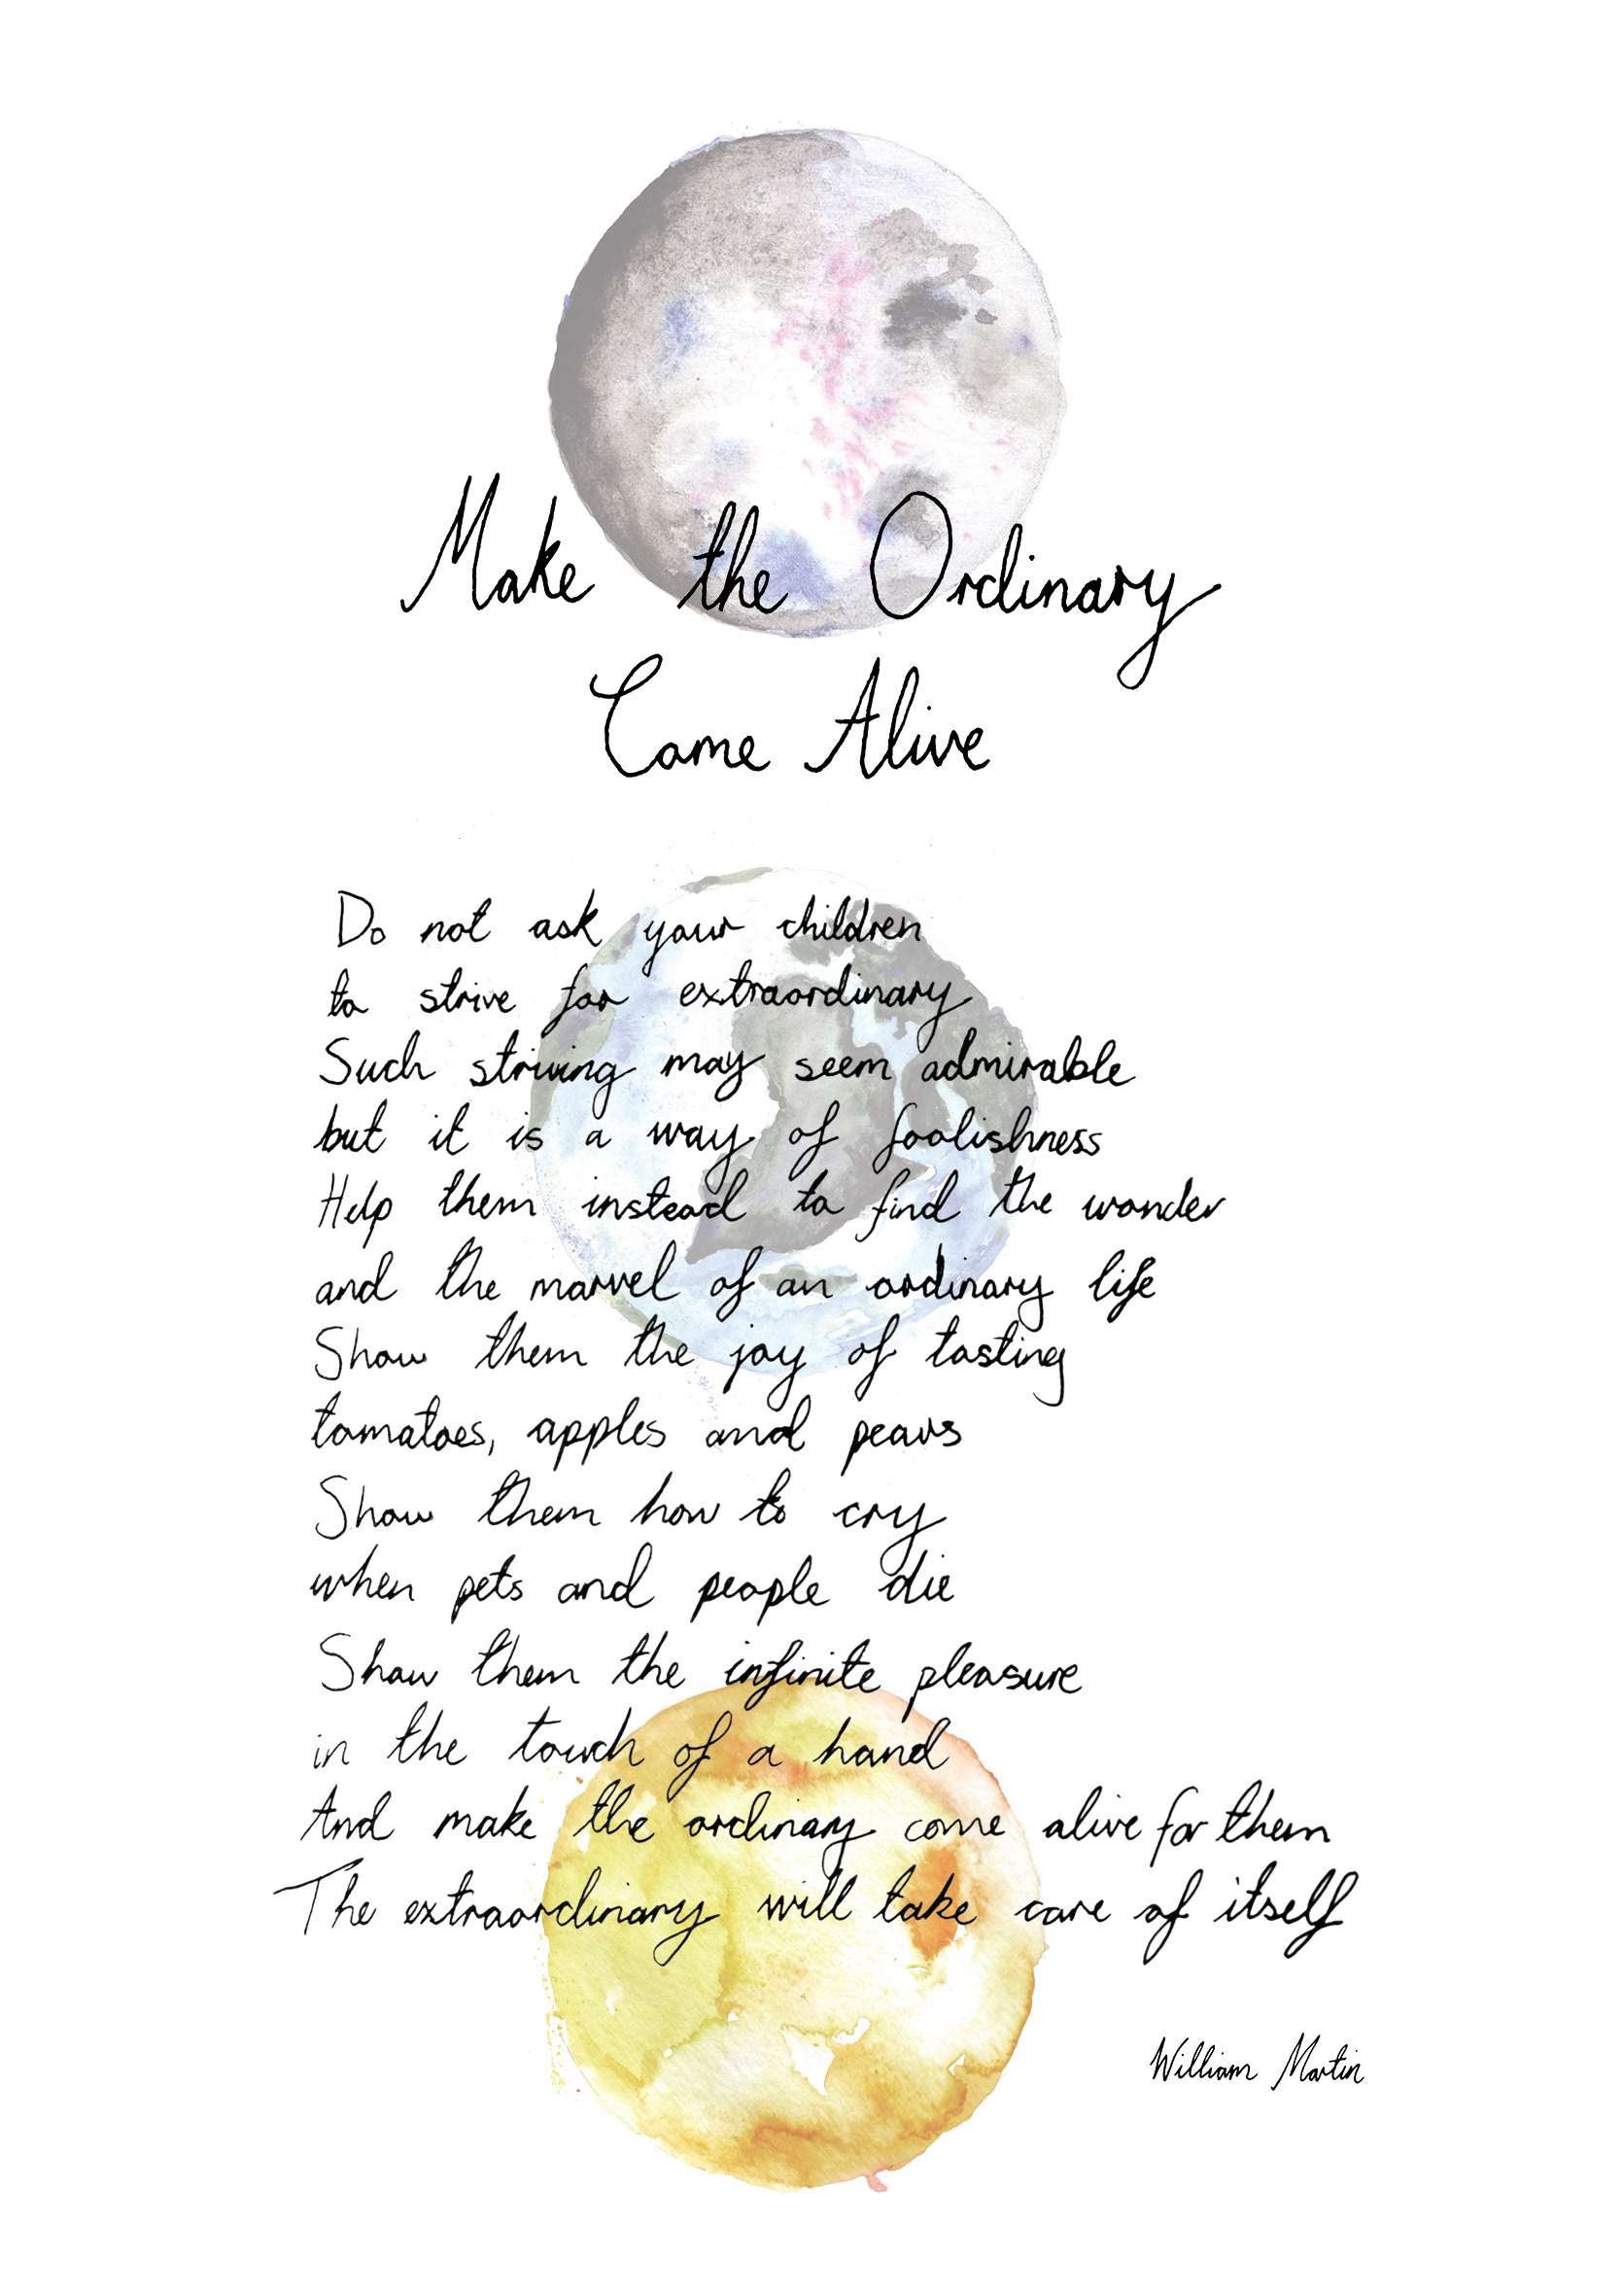 Make the Ordinary
Come Alive
Do not ask your children
to strive for extraordinary
Such striving may seem admirable
but it is a way of foolishness
Help them instead to find the wonder
and the marvel of an ordinary life
Show them the joy of tasting
tomatoes, apples and pears
Show them how to cry
when pets and people die
Show them the infinite pleasure
in the touch of a hand
And make the ordinary come alive for them
The extraordinary will take care of itself
William Martin